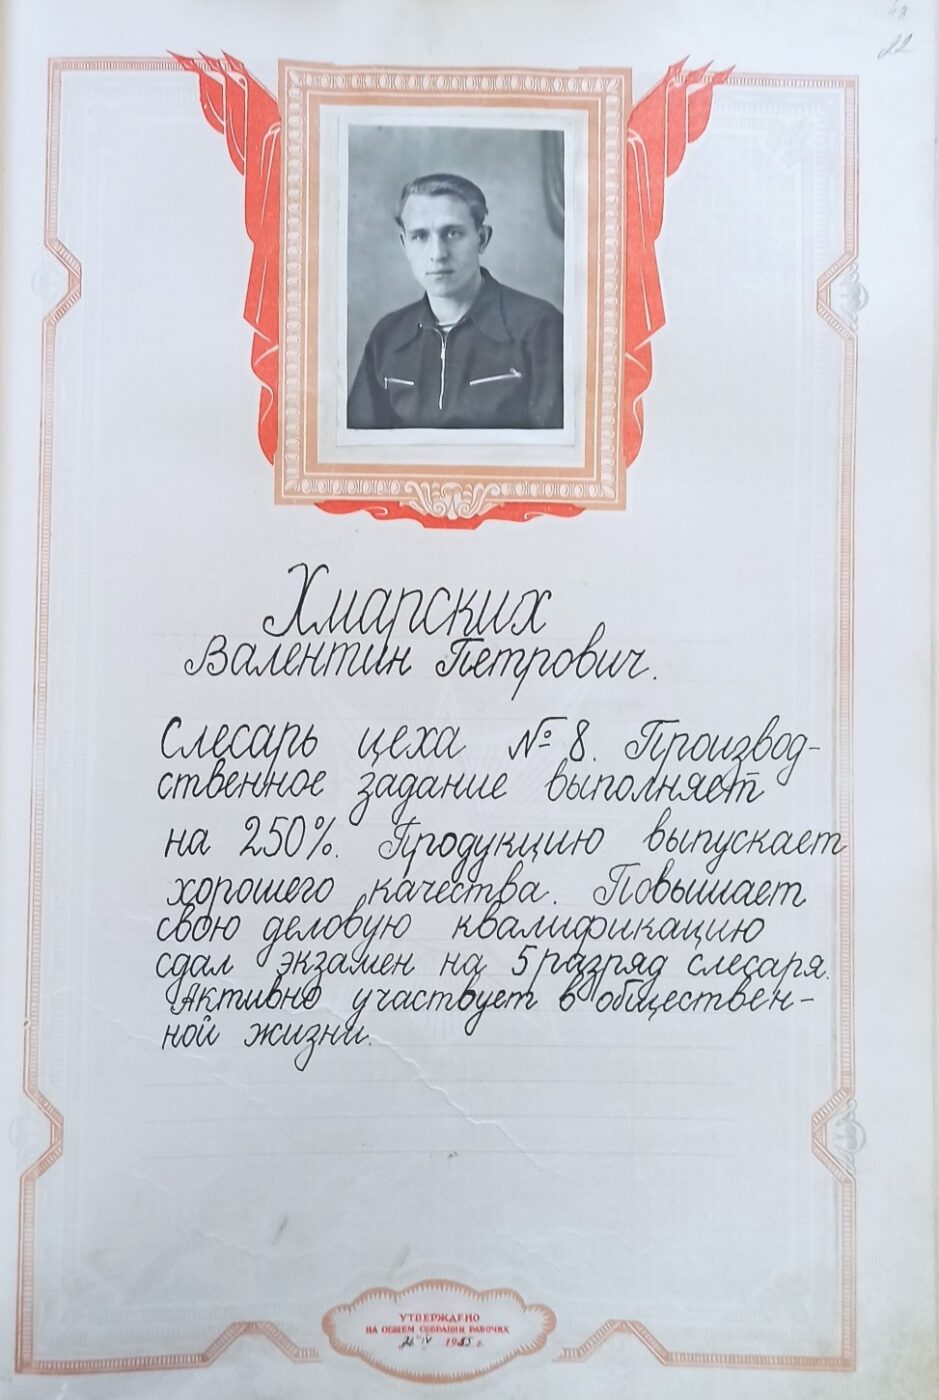 22
Хмарских
Валентин Петрович.
Слесарь цеха № 8. Производ-
ственное задание выполняет
на 250%. Продукцию выпускает
хорошего качества. Повышает
свою деловую квалификацию
сдал экзамен на 5 разряд слесаря.
Активно участвует в обществен-
ной жизни.
УТВЕРЖДЕНО
НА ОБЩЕМ СОБРАНИИ РАБОЧИХ
26 IV 1955 г.